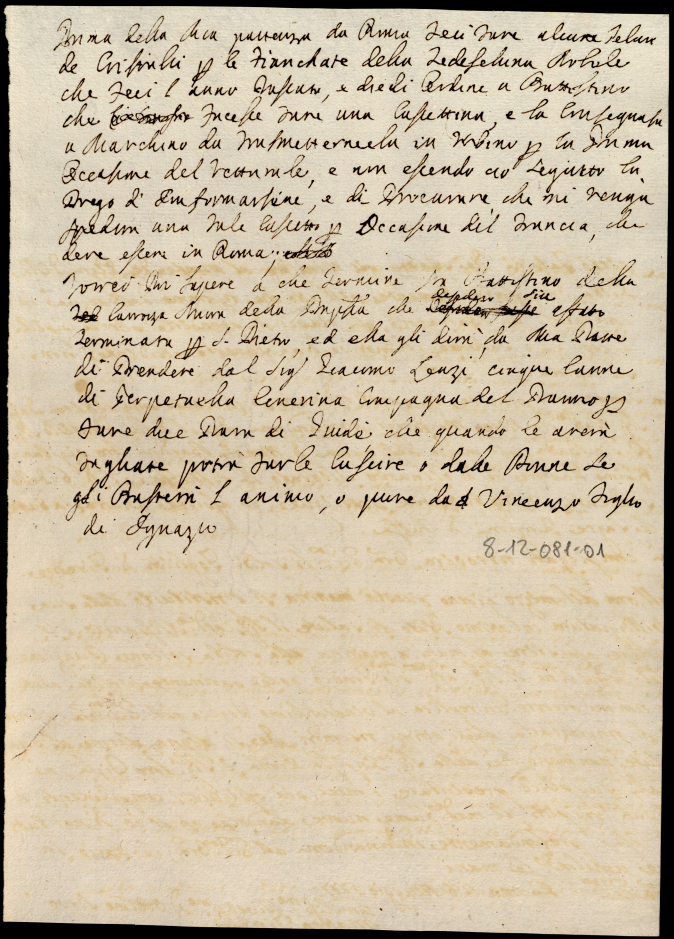 Prima della Mia partenza da Roma feci fare alcune Telari
de Cristalli p le fianchate della Tedeschina Nobile
che feci l'anno Passato, e diedi l'ordine a Battistino
che facesse fare una Cassettina, e la Consegnasse
a Marchino da trasmettermela in Urbino p la Prima
Occasione del Vetturale, e non essendo ciò seguito la
Prego d'Informarsine, e di Procurare, che mi venga
spedita una tale Cassetta p Occasione del Francia, che
deve essere in Roma,
a che termine sta Battistino della
Carozza Nuova della che desidero sia
Terminata p S. Pietro, ed ella gli dirà, da Mia Parte
di Prendere dal Sigr Giacomo Lenzi cinque Canne
di Perpetuella Cenerina Compagna del Panno p
fare due Para di Guide che quando le averà
tagliate potrà farle Cuscire o dalle Donne Le
gli Basterà l'animo, o pure da Vincenzo figlio
di Ignazio
8-12-081-01